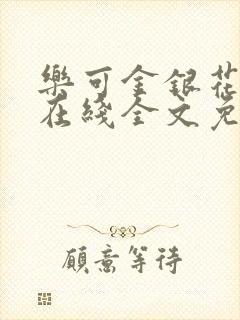 樂可金銀花
在綫全文免
願意等待